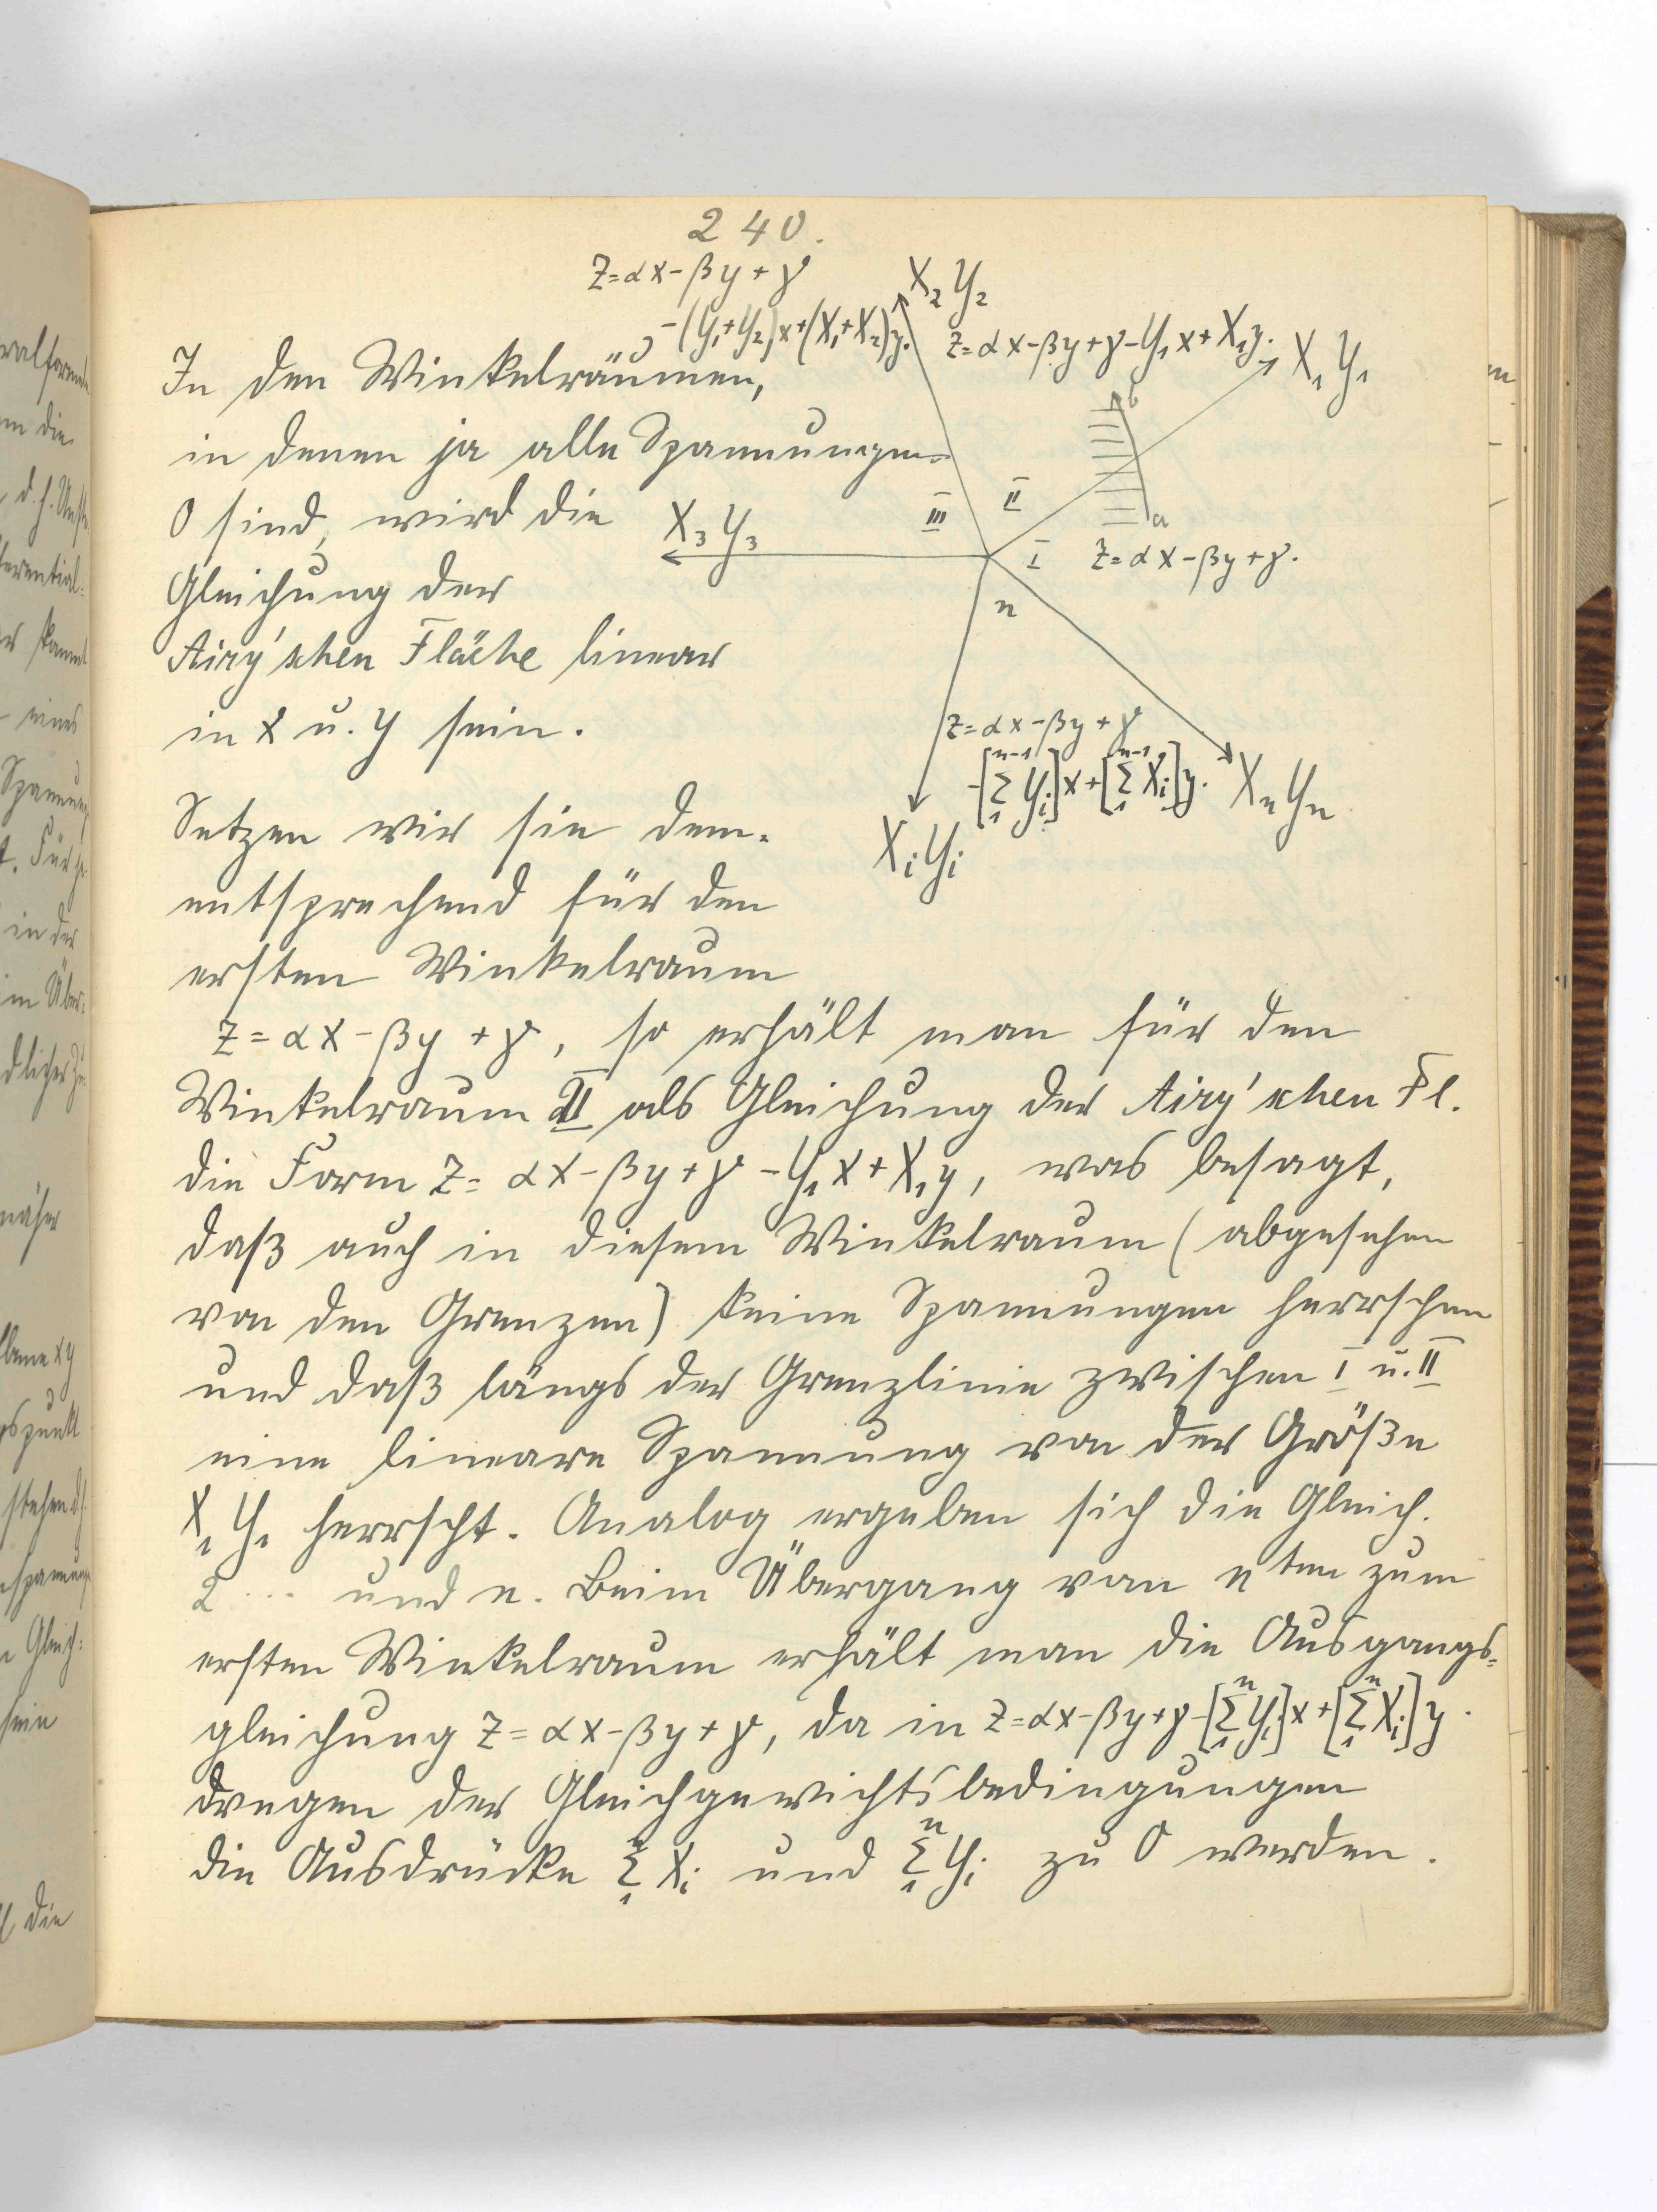 240.
z=αx-βy+γ
-(Y₁+Y₂)x+(X₁+X₂)y.
X₂Y₂
z=αx-βy+γ-Y₁x+X₁y.
X₁Y₁
In den Winkelräumen,
b
in denen ja alle Spannungen
0 sind, wird die
X₃Y₃
III
II
a
I
z=αx-βy+γ.
Gleichung der
n
Airy'schen Fläche linear
in x u. y sein.
z=αx-βy+γ
-[Σ₁ⁿ⁻¹ Yᵢ]x+[Σ₁ⁿ⁻¹ Xᵢ]y.
XₙYₙ
XᵢYᵢ
Setzen wir sie dem-
entsprechend für den
ersten Winkelraum
z=αx-βy+γ, so erhält man für den
Winkelraum II als Gleichung der Airy'schen Fl.
die Form z=αx-βy+γ-Y₁x+X₁y, was besagt,
daß auch in diesem Winkelraum (abgesehen
von den Grenzen) keine Spannungen herrschen
und daß längs der Grenzlinie zwischen I u. II
eine lineare Spannung von der Größe
X₁Y₁ herrscht. Analog ergeben sich die Gleich.
2 ... und n. Beim Übergang von nten zum
ersten Winkelraum erhält man die Ausgangs=
gleichung z=αx-βy+γ, da in z=αx-βy+γ-[Σ₁ⁿ Yᵢ]x+[Σ₁ⁿ Xᵢ]y.
wegen der Gleichgewichtsbedingungen
die Ausdrücke Σ₁ⁿ Xᵢ und Σ₁ⁿ Yᵢ zu 0 werden.